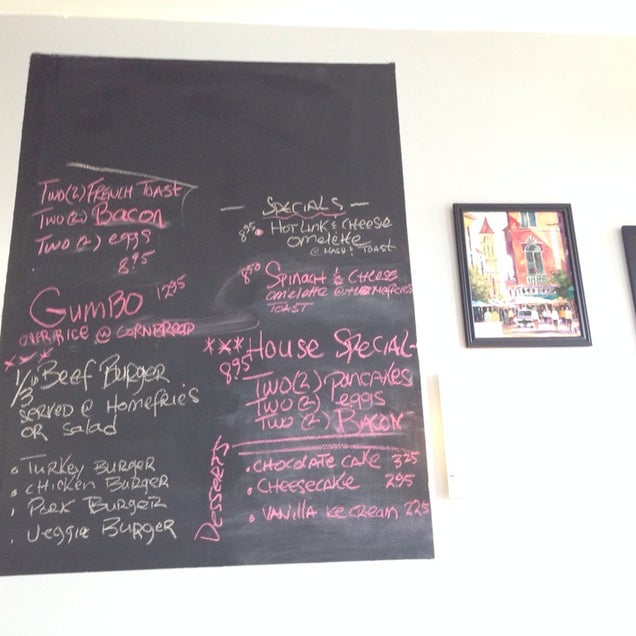 TWO(2) FRENCH TOAST
TWO(2) BACON
TWO(2) eggs
8.95
GUMBO 12.95
OVER RICE @ CORNBREAD
***
1/3 lb Beef Burger
SERVED @ Homefries
OR Salad
• TURKEY BURGER
• CHICKEN BURGER
• PORK BURGER
• Veggie Burger
— SPECIALS —
8.95 HOT LINK & CHEESE
Omelette
@ HASH! TOAST
8.50 SPINACH & CHEESE
omelette @ HOMEFRIES
TOAST
*** HOUSE SPECIAL-
8.95
TWO(2) PANCAKES
TWO(2) eggs
TWO(2) BACON
Desserts
• CHOCOLATE CAKE 3.25
• CHEESECAKE 2.95
• VANILLA ICE CREAM 2.25